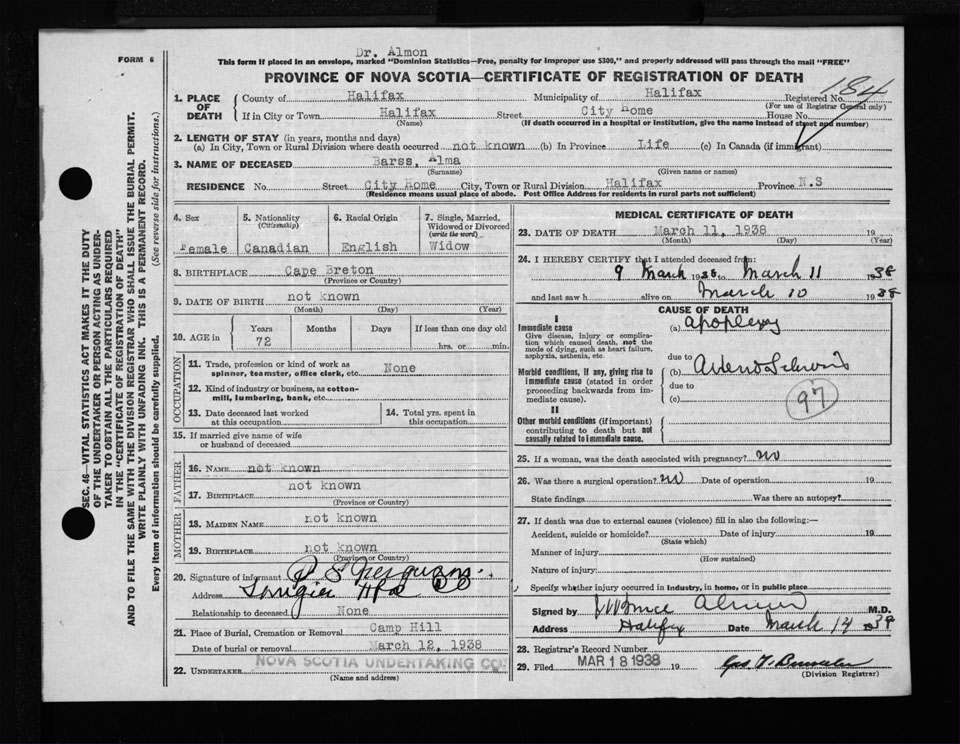 Dr. Almon
FORM 6
This form if placed in an envelope, marked "Dominion Statistics—Free, penalty for improper use $300," and properly addressed will pass through the mail "FREE"
PROVINCE OF NOVA SCOTIA—CERTIFICATE OF REGISTRATION OF DEATH
184
1. PLACE OF DEATH
County of Halifax Municipality of Halifax Registered No.
(For use of Registrar General only)
If in City or Town Halifax Street City Home House No.
(Name) (If death occurred in a hospital or institution, give the name instead of street and number)
2. LENGTH OF STAY (in years, months and days)
(a) In City, Town or Rural Division where death occurred not known (b) In Province Life (c) In Canada (if immigrant)
3. NAME OF DECEASED Barss, Alma
(Surname) (Given name or names)
RESIDENCE No. Street City Home City, Town or Rural Division Halifax Province N.S
(Residence means usual place of abode. Post Office Address for residents in rural parts not sufficient)
4. Sex
Female
5. Nationality
(Citizenship)
Canadian
6. Racial Origin
English
7. Single, Married,
Widowed or Divorced
(write the word)
Widow
8. BIRTHPLACE Cape Breton
(Province or Country)
9. DATE OF BIRTH not known
(Month) (Day) (Year)
10. AGE in
Years Months Days If less than one day old
72 hrs. or min.
OCCUPATION
11. Trade, profession or kind of work as
spinner, teamster, office clerk, etc. None
12. Kind of industry or business, as cotton-
mill, lumbering, bank, etc.
13. Date deceased last worked
at this occupation
14. Total yrs. spent in
this occupation
15. If married give name of wife
or husband of deceased
FATHER
16. NAME not known
17. BIRTHPLACE not known
(Province or Country)
MOTHER
18. MAIDEN NAME not known
19. BIRTHPLACE not known
(Province or Country)
20. Signature of informant
Address
Relationship to deceased None
21. Place of Burial, Cremation or Removal Camp Hill
Date of burial or removal March 12, 1938
22. UNDERTAKER NOVA SCOTIA UNDERTAKING CO.
(Name and address)
MEDICAL CERTIFICATE OF DEATH
23. DATE OF DEATH March 11, 1938 19
(Month) (Day) (Year)
24. I HEREBY CERTIFY that I attended deceased from:
9 March 1938 to March 11 1938
and last saw h alive on March 10 1938
CAUSE OF DEATH
I
Immediate cause
Give disease, injury or complica-
tion which caused death, not the
mode of dying, such as heart failure,
asphyxia, asthenia, etc.
(a) apoplexy
due to
Morbid conditions, if any, giving rise to
immediate cause (stated in order
proceeding backwards from im-
mediate cause).
(b)
due to
(c)
97
II
Other morbid conditions (if important)
contributing to death but not
causally related to immediate cause.
25. If a woman, was the death associated with pregnancy? No
26. Was there a surgical operation? No Date of operation 19
State findings Was there an autopsy?
27. If death was due to external causes (violence) fill in also the following:—
Accident, suicide or homicide? Date of injury 19
(State which)
Manner of injury
(How sustained)
Nature of injury
Specify whether injury occurred in industry, in home, or in public place
Signed by Almon M.D.
Address Halifax Date March 14 1938
28. Registrar's Record Number
29. Filed MAR 18 1938 19
(Division Registrar)
SEC. 46—VITAL STATISTICS ACT MAKES IT THE DUTY
OF THE UNDERTAKER OR PERSON ACTING AS UNDER-
TAKER TO OBTAIN ALL THE PARTICULARS REQUIRED
IN THE "CERTIFICATE OF REGISTRATION OF DEATH"
AND TO FILE THE SAME WITH THE DIVISION REGISTRAR WHO SHALL ISSUE THE BURIAL PERMIT.
WRITE PLAINLY WITH UNFADING INK. THIS IS A PERMANENT RECORD.
Every item of information should be carefully supplied. (See reverse side for instructions.)